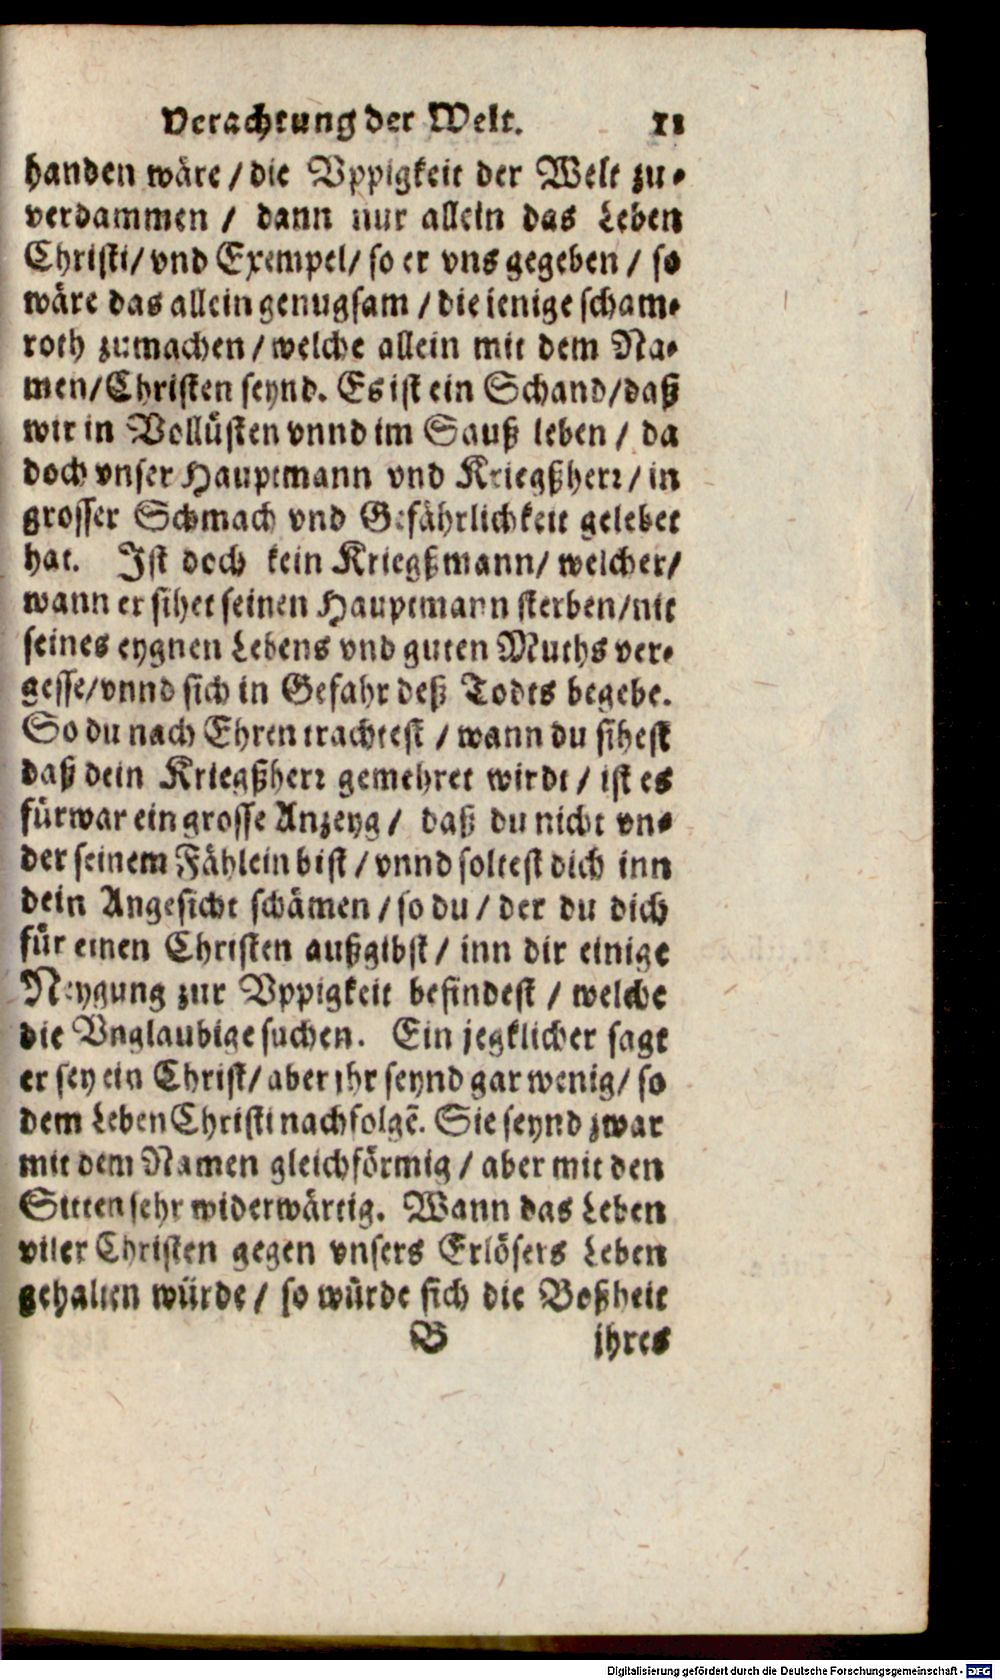 Verachtung der Welt. 11
handen wäre / die Vppigkeit der Welt zu-
verdammen / dann nur allein das Leben
Christi/ vnd Exempel/ so er vns gegeben / so
wäre das allein genugsam / die jenige scham-
roth zumachen / welche allein mit dem Na-
men/ Christen seynd. Es ist ein Schand/ daß
wir in Vollüsten vnnd im Sauß leben / da
doch vnser Hauptmann vnd Kriegßherr / in
grosser Schmach vnd Gefährlichkeit gelebet
hat. Ist doch kein Kriegßmann/ welcher/
wann er sihet seinen Hauptmann sterben/ nit
seines eygnen Lebens vnd guten Muths ver-
gesse/ vnnd sich in Gefahr deß Todts begebe.
So du nach Ehren trachtest / wann du sihest
daß dein Kriegßherr gemehret wirdt / ist es
fürwar ein grosse Anzeyg / daß du nicht vn-
der seinem Fähleinbist / vnnd soltest dich inn
dein Angesicht schämen / so du / der du dich
für einen Christen außgibst / inn dir einige
Neygung zur Vppigkeit befindest / welche
die Vnglaubige suchen. Ein jegklicher sagt
er sey ein Christ/ aber jhr seynd gar wenig/ so
dem Leben Christi nachfolgẽ. Sie seynd zwar
mit dem Namen gleichförmig / aber mit den
Sitten sehr widerwärtig. Wann das Leben
viler Christen gegen vnsers Erlösers Leben
gehalten würde / so würde sich die Boßheit
B jhres
Digitalisierung gefördert durch die Deutsche Forschungsgemeinschaft - DFG